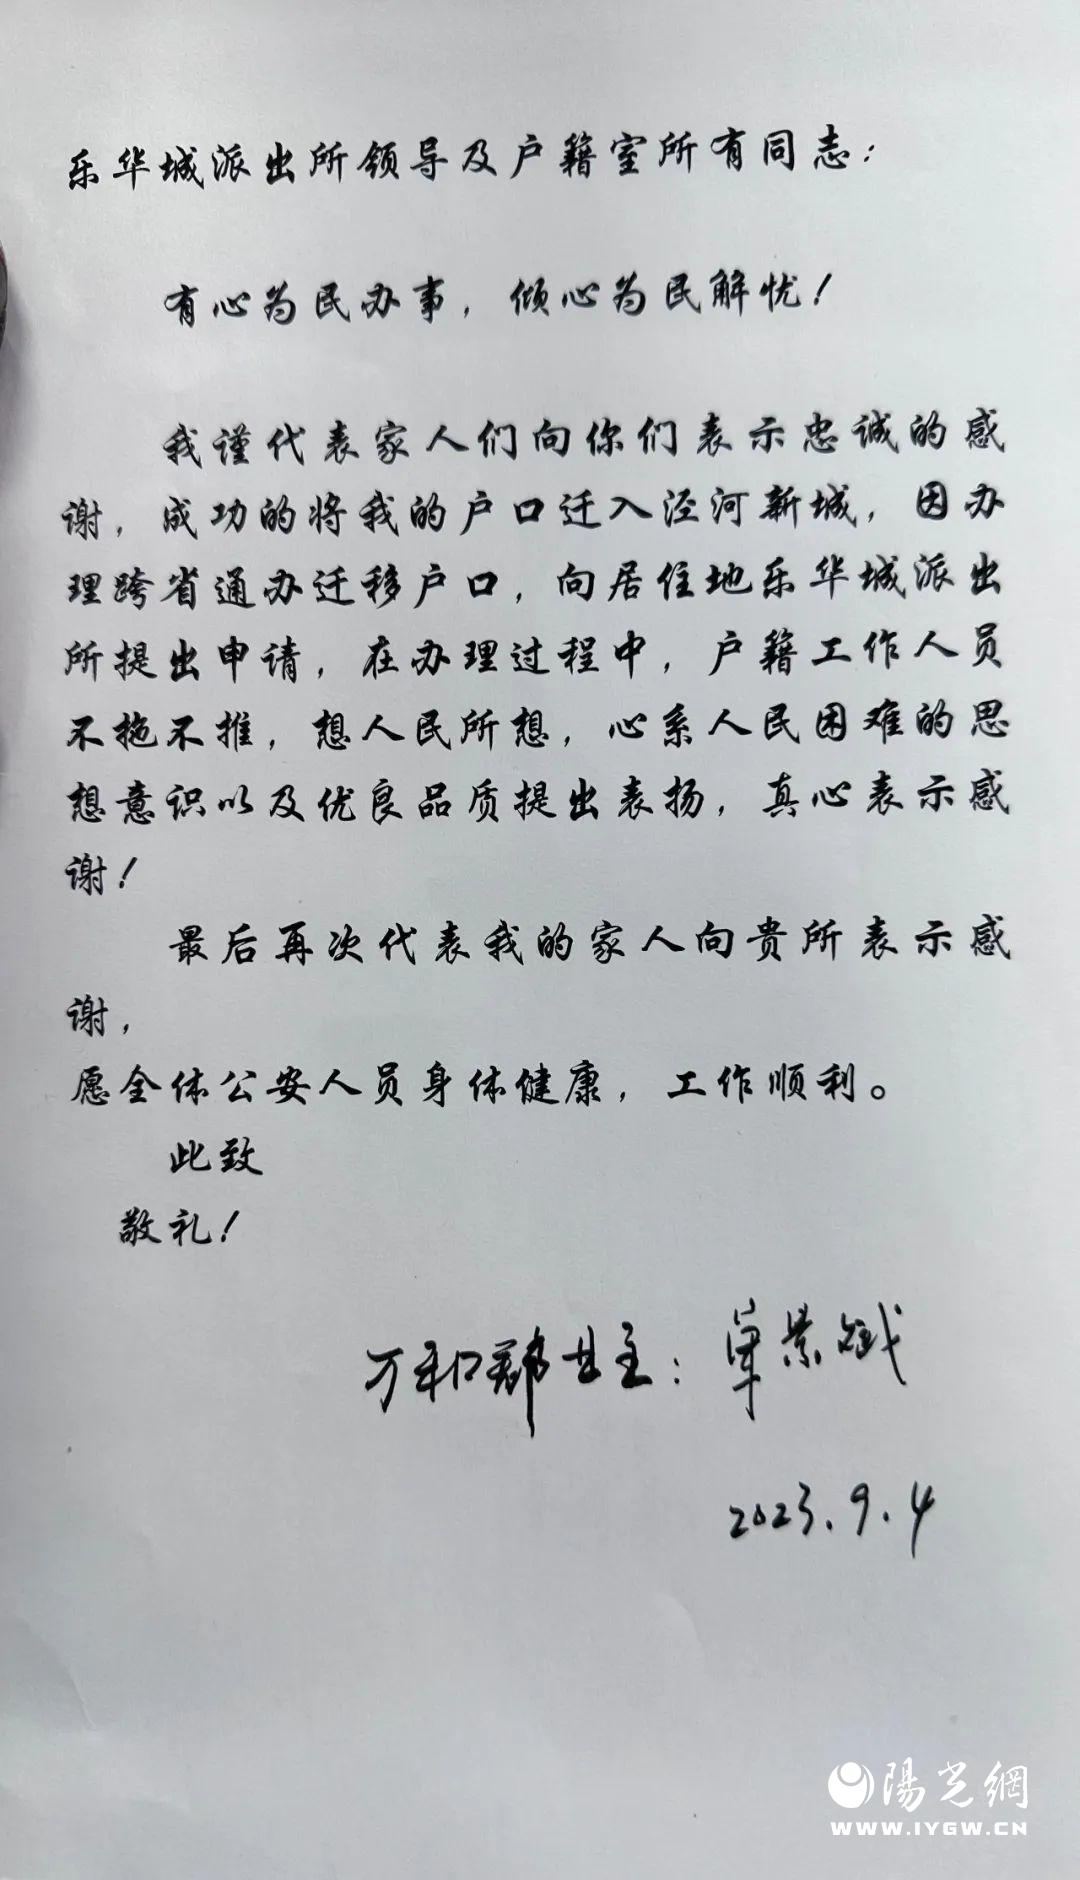 乐华城派出所领导及户籍室所有同志：
有心为民办事，倾心为民解忧！
我谨代表家人们向你们表示忠诚的感
谢，成功的将我的户口迁入泾河新城，因办
理跨省通办迁移户口，向居住地乐华城派出
所提出申请，在办理过程中，户籍工作人员
不拖不推，想人民所想，心系人民困难的思
想意识以及优良品质提出表扬，真心表示感
谢！
最后再次代表我的家人向贵所表示感
谢，
愿全体公安人员身体健康，工作顺利。
此致
敬礼！
万和郡业主：单景斌
2023.9.4
陽光網
WWW.IYGW.CN